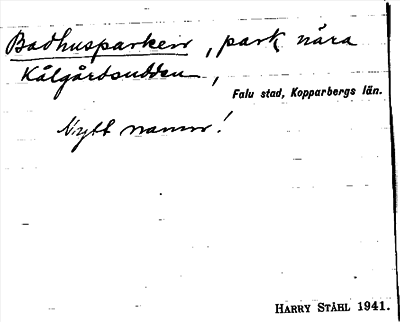 Badhusparken, park nära
Kålgårdsudden,
Falu stad, Kopparbergs län.
Nytt namn!
HARRY STÅHL 1941.